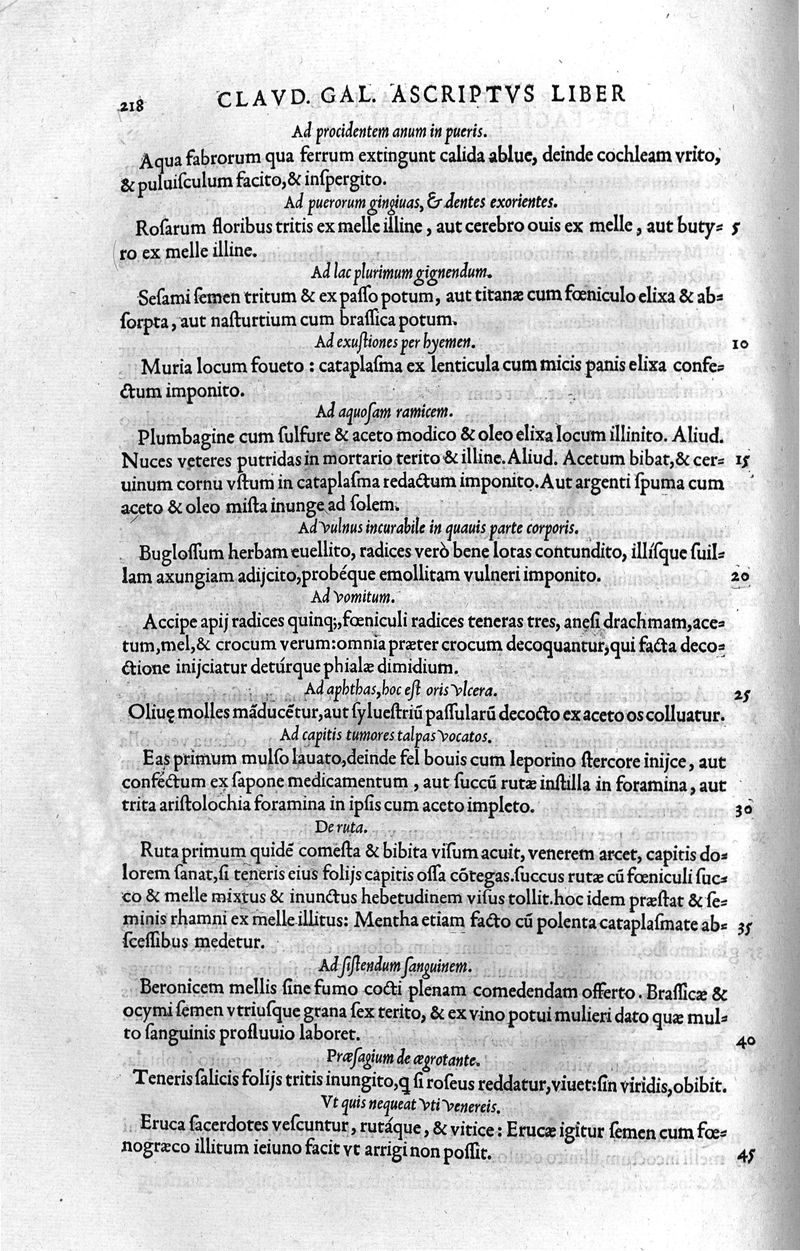 218 CLAVD. GAL. ASCRIPTVS LIBER
Ad procidentem anum in pueris.
Aqua fabrorum qua ferrum extingunt calida ablue, deinde cochleam vrito,
& puluiſculum facito, & inſpergito.
Ad puerorum gingiuas, & dentes exorientes.
Roſarum floribus tritis ex melle illine, aut cerebro ouis ex melle, aut buty- 5
ro ex melle illine.
Ad lac plurimum gignendum.
Seſami ſemen tritum & ex paſſo potum, aut titanæ cum fœniculo elixa & ab-
ſorpta, aut naſturtium cum braſſica potum.
Ad exuſtiones per hyemen. 10
Muria locum foueto: cataplaſma ex lenticula cum micis panis elixa confe-
ctum imponito.
Ad aquoſam ramicem.
Plumbagine cum ſulfure & aceto modico & oleo elixa locum illinito. Aliud.
Nuces veteres putridas in mortario terito & illine. Aliud. Acetum bibat, & cer- 15
uinum cornu vſtum in cataplaſma redactum imponito. Aut argenti ſpuma cum
aceto & oleo miſta inunge ad ſolem.
Ad vulnus incurabile in quauis parte corporis.
Bugloſſum herbam euellito, radices verò bene lotas contundito, illíſque ſuil-
lam axungiam adijcito, probéque emollitam vulneri imponito. 20
Ad vomitum.
Accipe apij radices quinq;, fœniculi radices teneras tres, aneſi drachmam, ace-
tum, mel, & crocum verum: omnia præter crocum decoquantur, qui facta deco-
ctione inijciatur detúrque phialæ dimidium.
Ad aphthas, hoc eſt oris vlcera. 25
Oliuę molles mãducẽtur, aut ſylueſtriũ paſſularũ decocto ex aceto os colluatur.
Ad capitis tumores talpas vocatos.
Eas primum mulſo lauato, deinde fel bouis cum leporino ſtercore inijce, aut
conféctum ex ſapone medicamentum, aut ſuccũ rutæ inſtilla in foramina, aut
trita ariſtolochia foramina in ipſis cum aceto impleto. 30
De ruta.
Ruta primum quidẽ comeſta & bibita viſum acuit, venerem arcet, capitis do-
lorem ſanat, ſi teneris eius folijs capitis oſſa cõtegas. ſuccus rutæ cũ fœniculi ſuc-
co & melle mixtus & inunctus hebetudinem viſus tollit. hoc idem præſtat & ſe-
minis rhamni ex melle illitus: Mentha etiam facto cũ polenta cataplaſmate ab- 35
ſceſſibus medetur.
Ad ſiſtendum ſanguinem.
Beronicem mellis ſine fumo cocti plenam comedendam offerto. Braſſicæ &
ocymi ſemen vtriuſque grana ſex terito, & ex vino potui mulieri dato quæ mul-
to ſanguinis profluuio laboret. 40
Præſagium de ægrotante.
Teneris ſalicis folijs tritis inungito, q̃ ſi roſeus reddatur, viuet: ſin viridis, obibit.
Vt quis nequeat vti venereis.
Eruca ſacerdotes veſcuntur, rutáque, & vitice: Erucæ igitur ſemen cum fœ-
nogræco illitum ieiuno facit vt arrigi non poſſit. 45